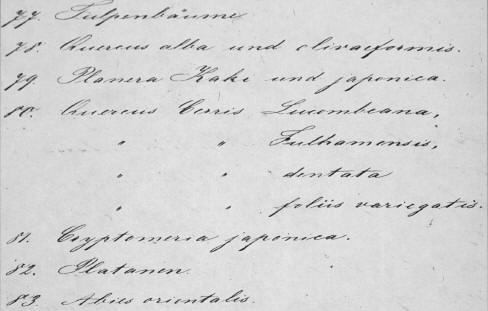 77. Tulpenbäume
78. Quercus alba und olivaeformis.
79. Planera Kaki und japonica.
80. Quercus Cerris Lucombeana,
" " Fulhamensis,
" " dentata
" " foliis variegatis.
81. Cryptomeria japonica.
82. Platanen
83. Abies orientalis.